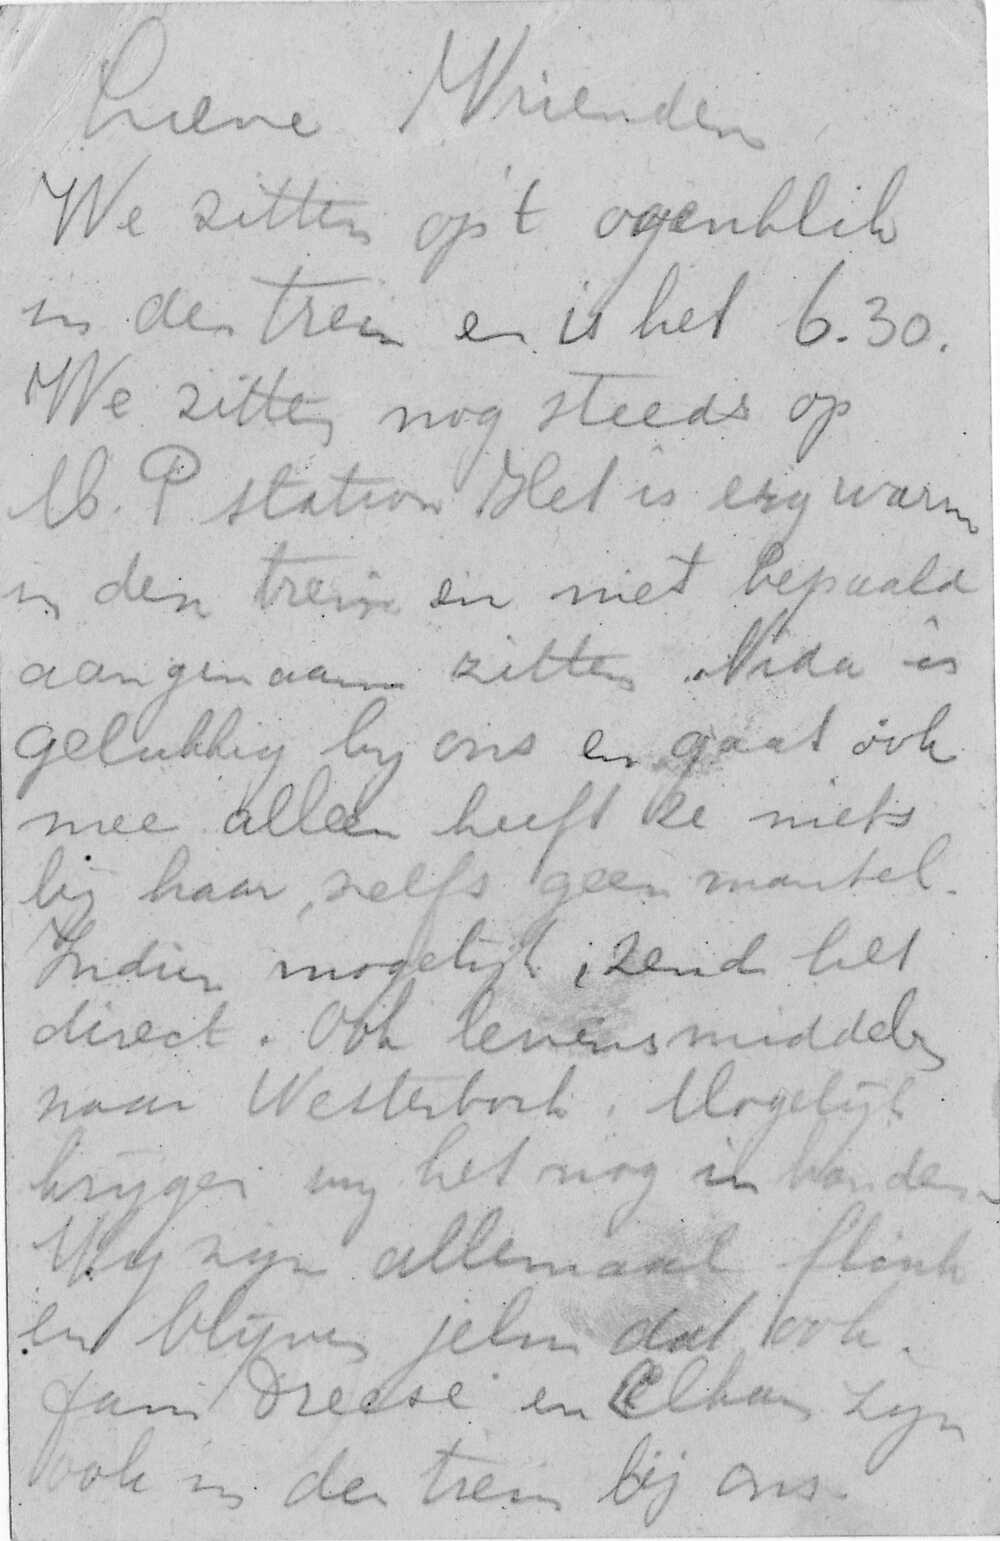 Lieve Vrienden
We zitten op 't ogenblik
in den trein en is het 6.30.
We zitten nog steeds op
M. P station Het is erg warm
in den trein en niet bepaald
aangenaam zitten. Nida is
gelukkig by ons en gaat ook
mee alleen heeft ze niets
bij haar, zelfs geen mantel.
Indien mogelijk, zend het
direct. Ook levensmiddelen
naar Westerbork. Mogelijk
krijgen wy het nog in handen
Wy zyn allemaal flink
en blijven jelui dat ook.
fam Dreese en Elkan zyn
ook in den trein bij ons.